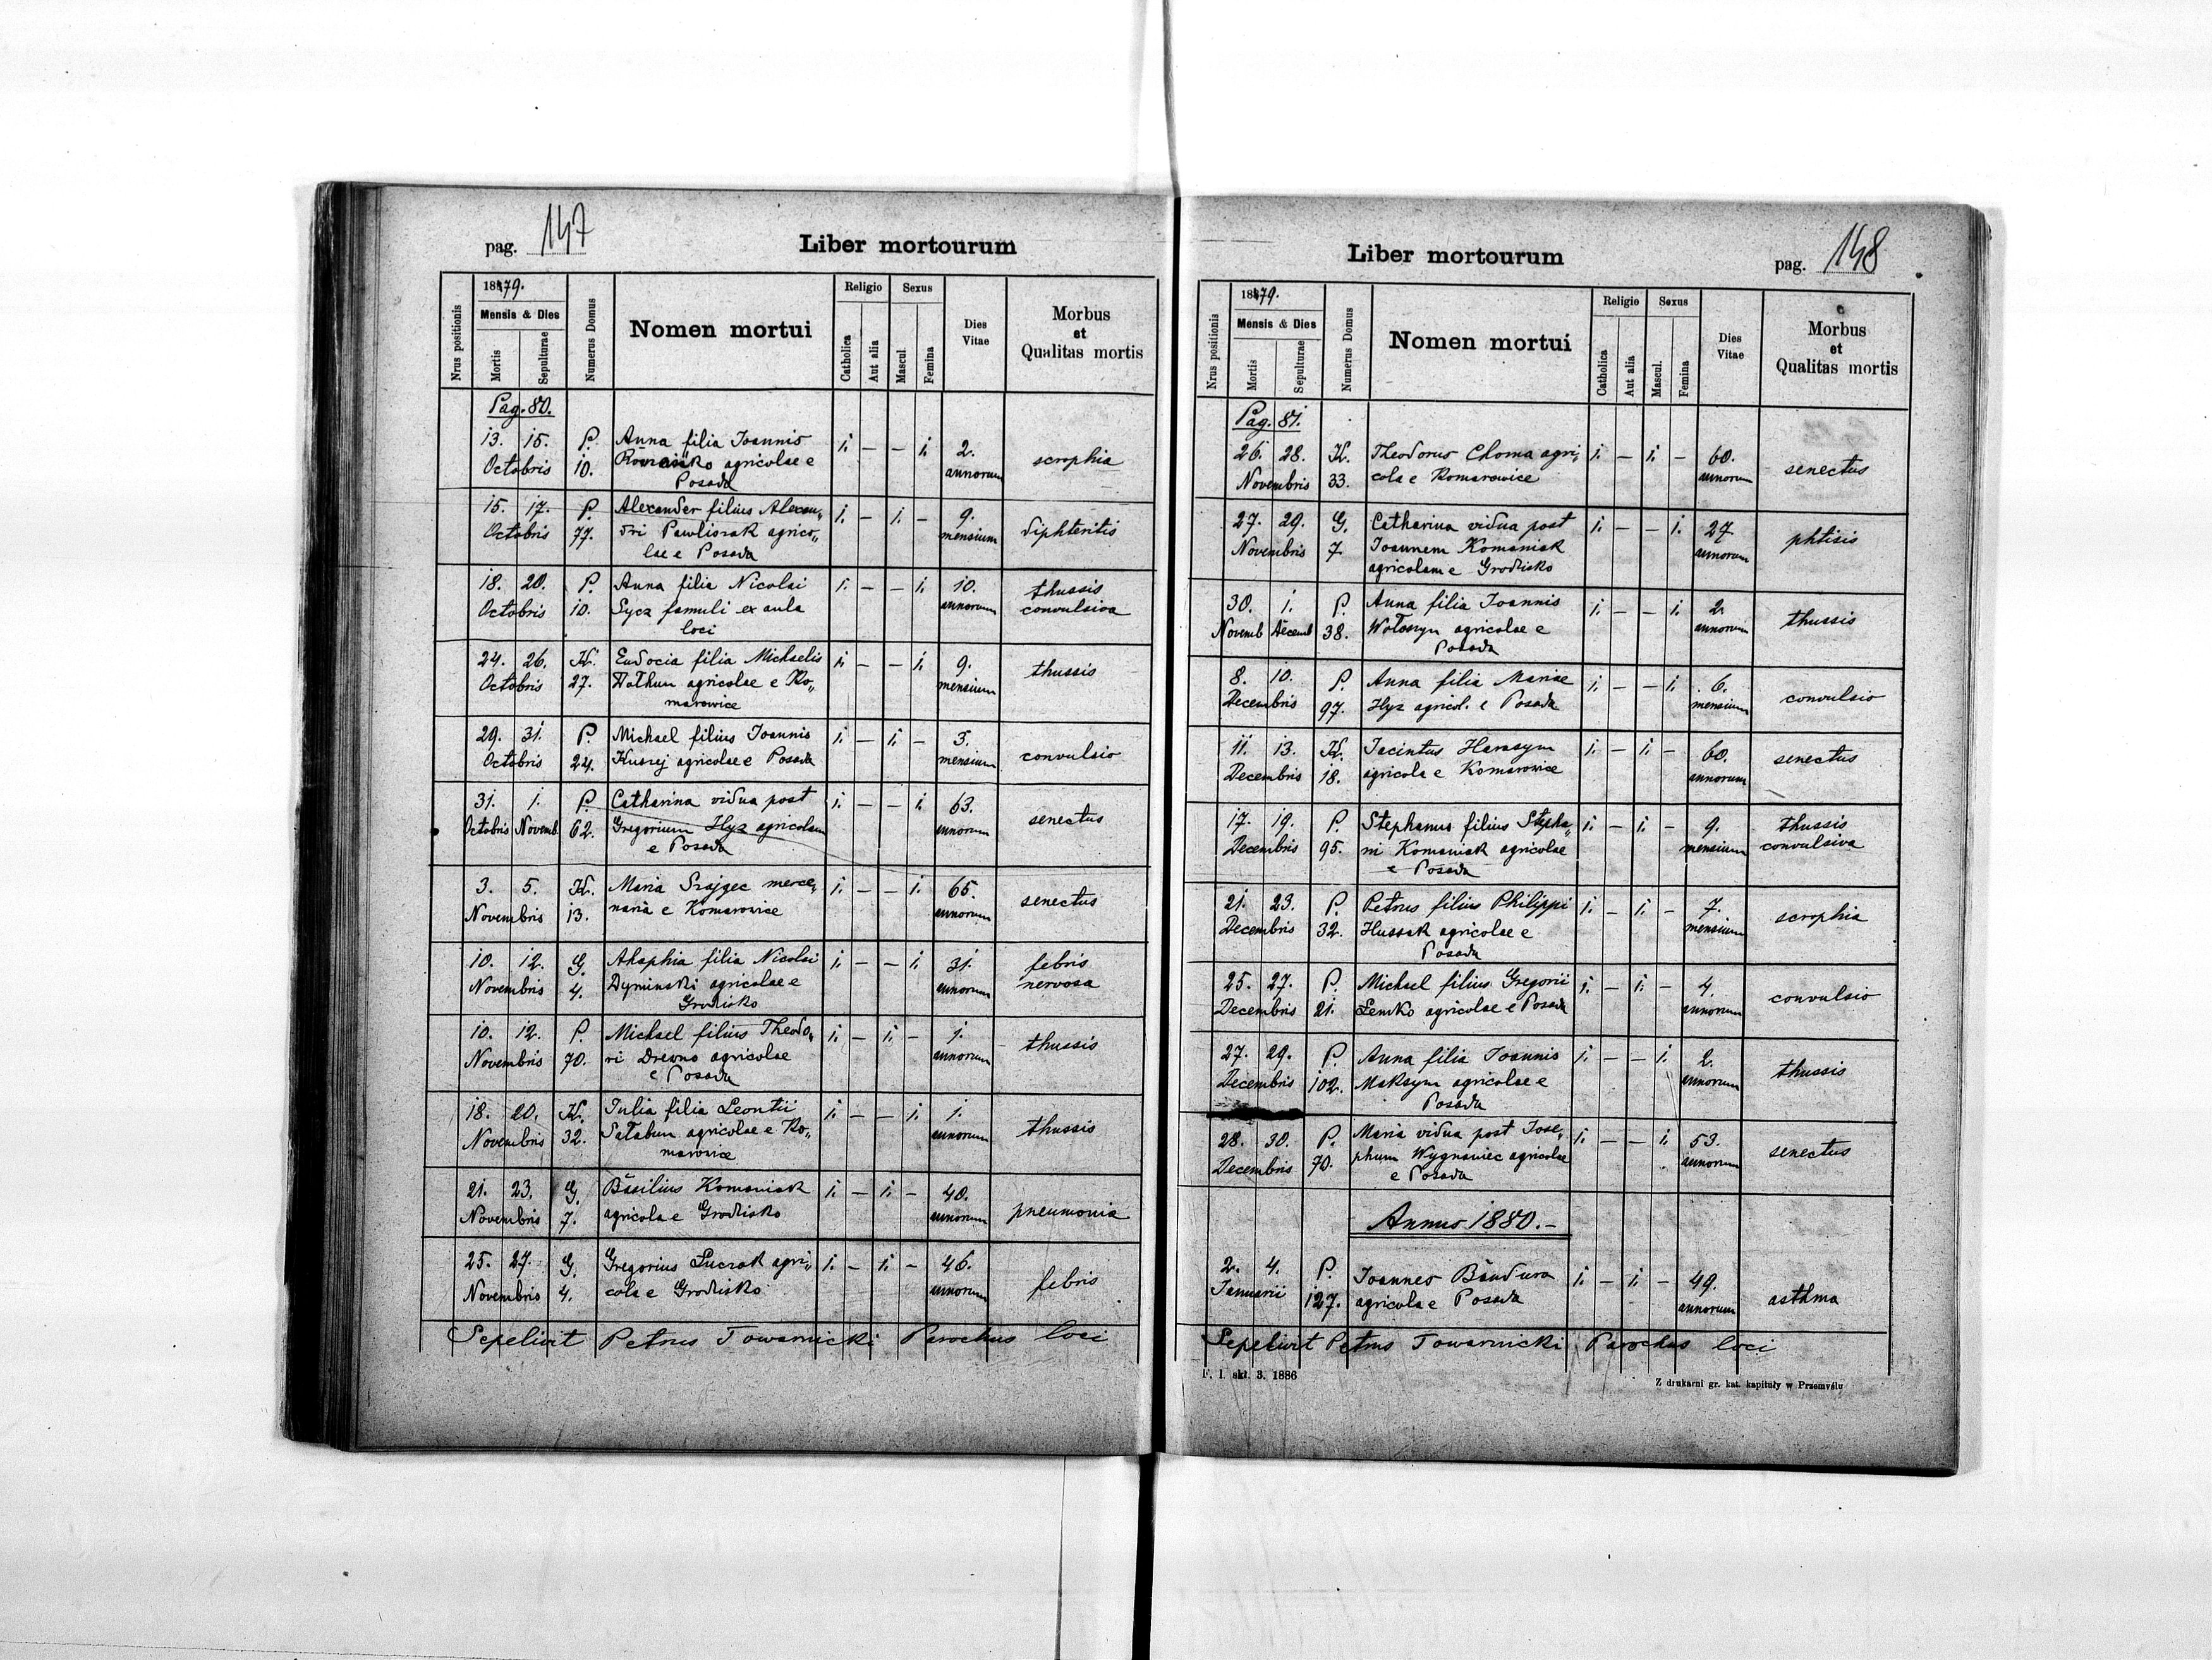 pag. 147
Liber mortourum
Nrus positionis
1879.
Mensis & Dies
Mortis
Sepulturae
Numerus Domus
Nomen mortui
Religio
Catholica
Aut alia
Sexus
Mascul
Femina
Dies
Vitae
Morbus
et
Qualitas mortis
Pag. 80.
13. 15. P. Anna filia Joannis 1. — — 1. 2.
Octobris 10. agricolae e annorum scrophia
Posada
15. 17. P. Alexander filius Alexan„ 1. — 1. — 9.
Octobris 77. dri Pawliszak agrico„ mensium diphteritis
lae e Posada
18. 20. P. Anna filia Nicolai 1. — — 1. 10. thussis
Octobris 10. Sycz famuli ex aula annorum convulsiva
loci
24. 26. K. Eudocia filia Michaelis 1. — — 1. 9. thussis
Octobris 27. agricolae e Ko„ mensium
marowice
29. 31. P. Michael filius Joannis 1. — 1. — 3.
Octobris 24. agricolae e Posada mensium convulsio
31. 1. P. Catharina vidua post 1. — — 1. 63.
Octobris Novemb. 62. Gregorium Hyz agricolam annorum senectus
e Posada
3. 5. K. Maria Szajgec merce„ 1. — — 1. 65.
Novembris 13. naria e Komarowice annorum senectus
10. 12. G. Ahaphia filia Nicolai 1. — — 1. 31. febris
Novembris 4. Dyminski agricolae e annorum nervosa
Grodzisko
10. 12. P. Michael filius Theodo„ 1. — 1. — 1.
Novembris 70. ri Drewno agricolae annorum thussis
e Posada
18. 20. K. Julia filia Leontii 1. — — 1. 1.
Novembris 32. Sałabun agricolae e Ko„ annorum thussis
marowice
21. 23. G. Basilius Komaniak 1. — 1. — 40.
Novembris 7. agricola e Grodzisko annorum pneumonia
25. 27. G. Gregorius Łuczak agri„ 1. — 1. — 46.
Novembris 4. cola e Grodzisko annorum febris
Sepelivit Petrus Towarnicki Parochus loci
Liber mortourum
pag. 148
Nrus positionis
1879.
Mensis & Dies
Mortis
Sepulturae
Numerus Domus
Nomen mortui
Religio
Catholica
Aut alia
Sexus
Mascul.
Femina
Dies
Vitae
Morbus
et
Qualitas mortis
Pag. 81.
26. 28. K. Theodorus Choma agri„ 1. — 1. — 60.
Novembris 33. cola e Komarowice annorum senectus
27. 29. G. Catharina vidua post 1. — — 1. 27
Novembris 7. Joannem Komaniak annorum phtisis
agricolam e Grodzisko
30. 1. P. Anna filia Joannis 1. — — 1. 2.
Novemb Decemb 38. Wołoszyn agricolae e annorum thussis
Posada
8. 10. P. Anna filia Mariae 1. — — 1. 6.
Decembris 97. Hyz agricol. e Posada mensium convulsio
11. 13. K. Jacintus Harasym 1. — 1. — 60.
Decembris 18. agricola e Komarowice annorum senectus
17. 19. P. Stephanus filius Stepha„ 1. — 1. — 9. thussis
Decembris 95. ni Komaniak agricolae mensium convulsiva
e Posada
21. 23. P. Petrus filius Philippi 1. — 1. — 7.
Decembris 32. Hussak agricolae e mensium scrophia
Posada
25. 27. P. Michael filius Gregorii 1. — 1. — 4.
Decembris 21. Łemko agricolae e Posada annorum convulsio
27. 29. P. Anna filia Joannis 1. — — 1. 2.
Decembris 102. Maksym agricolae e annorum thussis
Posada
28. 30. P. Maria vidua post Jose„ 1. — — 1. 53.
Decembris 70. phum Wygnaniec agricolae annorum senectus
e Posada
Annus 1880.–
2. 4. P. Joannes Bandura 1. — 1. — 49.
Januarii 127. agricola e Posada annorum asthma
Sepelivit Petrus Towarnicki Parochus loci
F. I. skł. 3. 1886
Z drukarni gr. kat. kapituły w Przemyślu